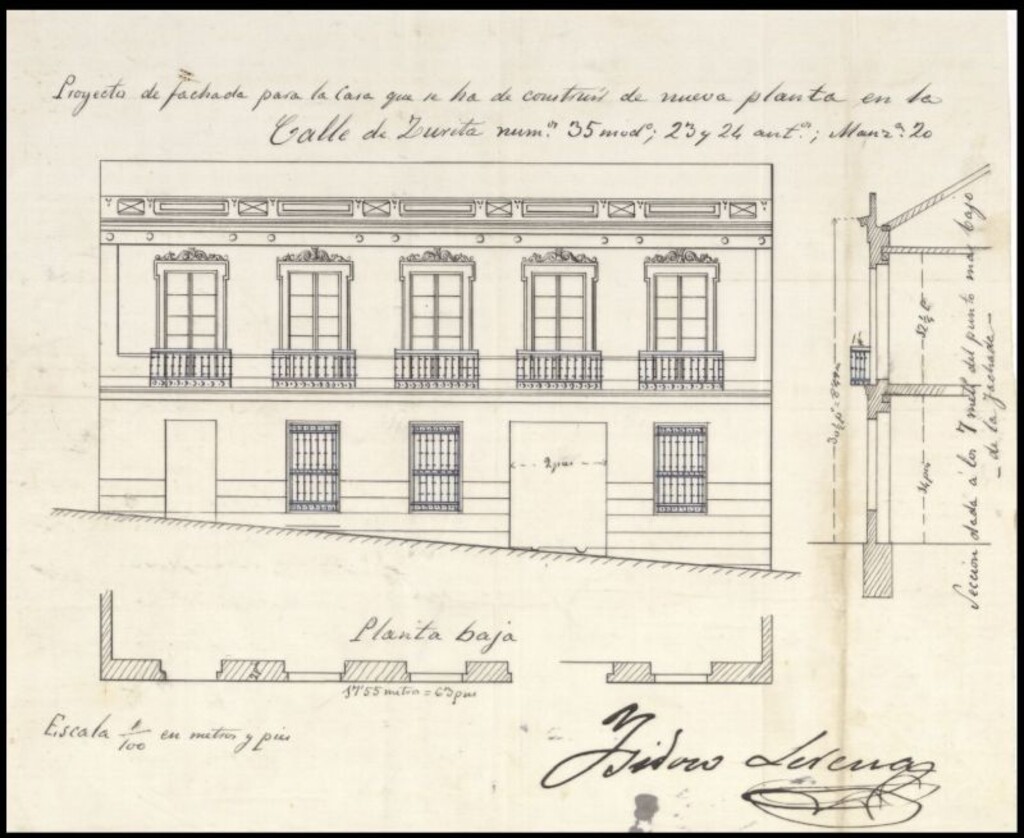 Proyecto de fachada para la Casa que se ha de construir de nueva planta en la
Calle de Zurita num.º 35 modº; 23 y 24 ant.os; Manz.ª 20
2 pies
Sección dada á los 7 metˢ del punto mas bajo
- de la fachada -
14 pies
Planta baja
17'55 metros = 63 pies
Escala 1/100 en metros y pies
Isidoro Lerena